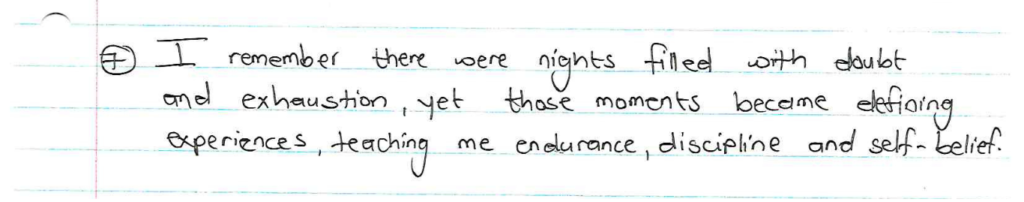 ⑦ I remember there were nights filled with doubt
and exhaustion, yet those moments became defining
experiences, teaching me endurance, discipline and self-belief.